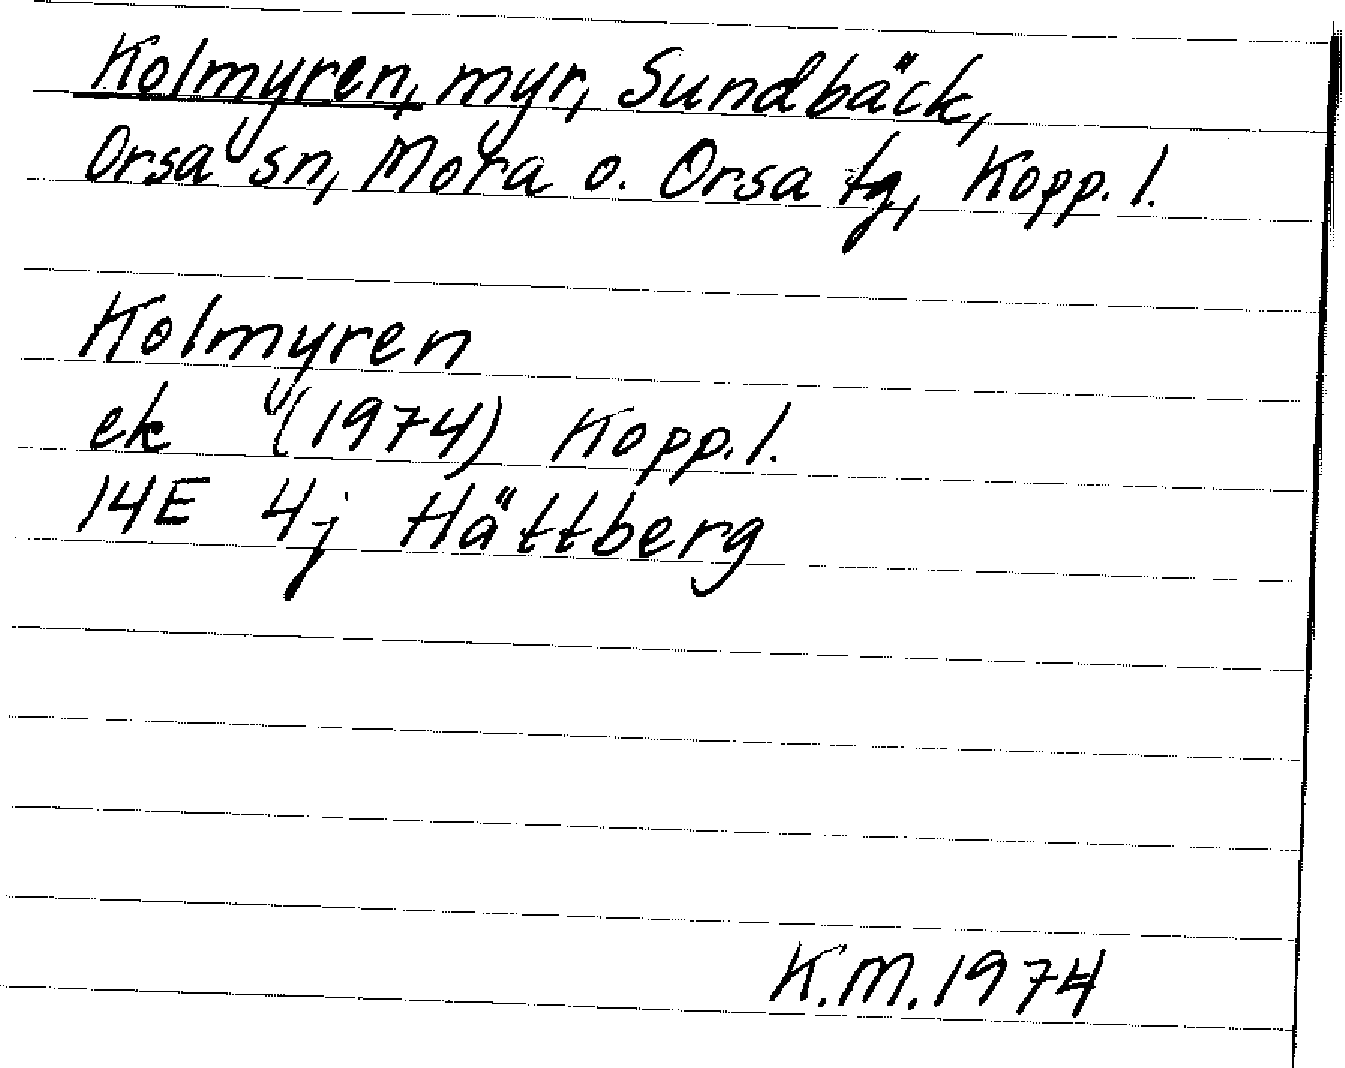 Kolmyren, myr, Sundbäck,
Orsa sn, Mora o. Orsa tg, Kopp. l.
Kolmyren
ek (1974) Kopp. l.
14E 4j Hättberg
K.M. 1974